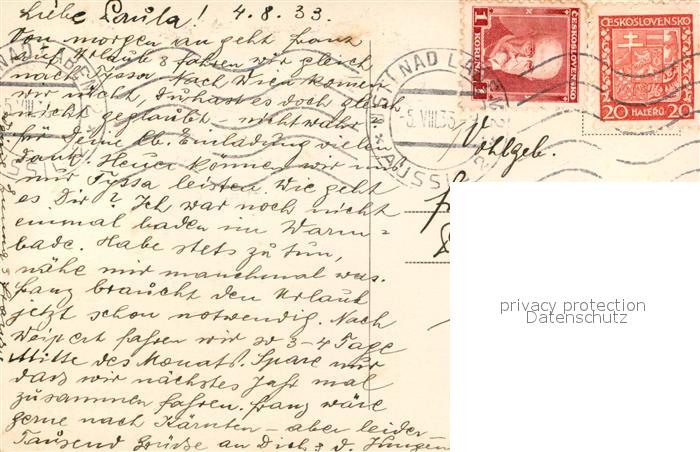 Liebe Paula! 4.8.33.
Von morgen an geht Franz
auf Urlaub & fahren wir gleich
nach Tyssa. Nach Wien können
wir nicht, du hast es doch gleich
nicht geglaubt - nicht wahr
für Deine lb. Einladung vielen
Dank! Heuer können wir uns
nur Tyssa leisten. Wie geht
es Dir? Ich war noch nicht
einmal baden im Warm-
bade. Habe stets zu tun,
nähe mir manchmal was.
Franz braucht den Urlaub
jetzt schon notwendig. Nach
Weipert fahren wir so 3-4 Tage
Mitte des Monats. Spare nur
dass wir nächstes Jahr mal
zusammen fahren. Franz wäre
gerne nach Kärnten - aber leider-
Tausend Grüße an Dich & d. Jungen
1 KORUNA 1
ČESKOSLOVENSKO
ČESKOSLOVENSKO
20 HALÉŘŮ 20
NAD LABEM
5.VIII.33
AUSSIG
Wohlgeb.
privacy protection
Datenschutz